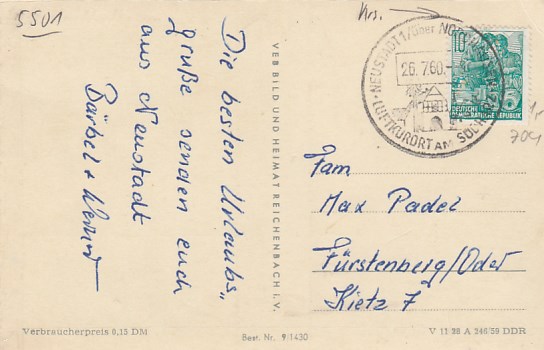 5501
Krs.
Die besten Urlaubs„
grüße senden euch
aus Neustadt
Bärbel + Werner
VEB BILD UND HEIMAT REICHENBACH I. V.
NEUSTADT 1/über NORDHAUSEN
26.7.60.
LUFTKURORT AM SÜDHARZ
10
DEUTSCHE
DEMOKRATISCHE REPUBLIK
704
Fam
Max Padel
Fürstenberg/Oder
Kietz 7
Verbraucherpreis 0,15 DM
Best. Nr. 9/1430
V 11 28 A 246/59 DDR